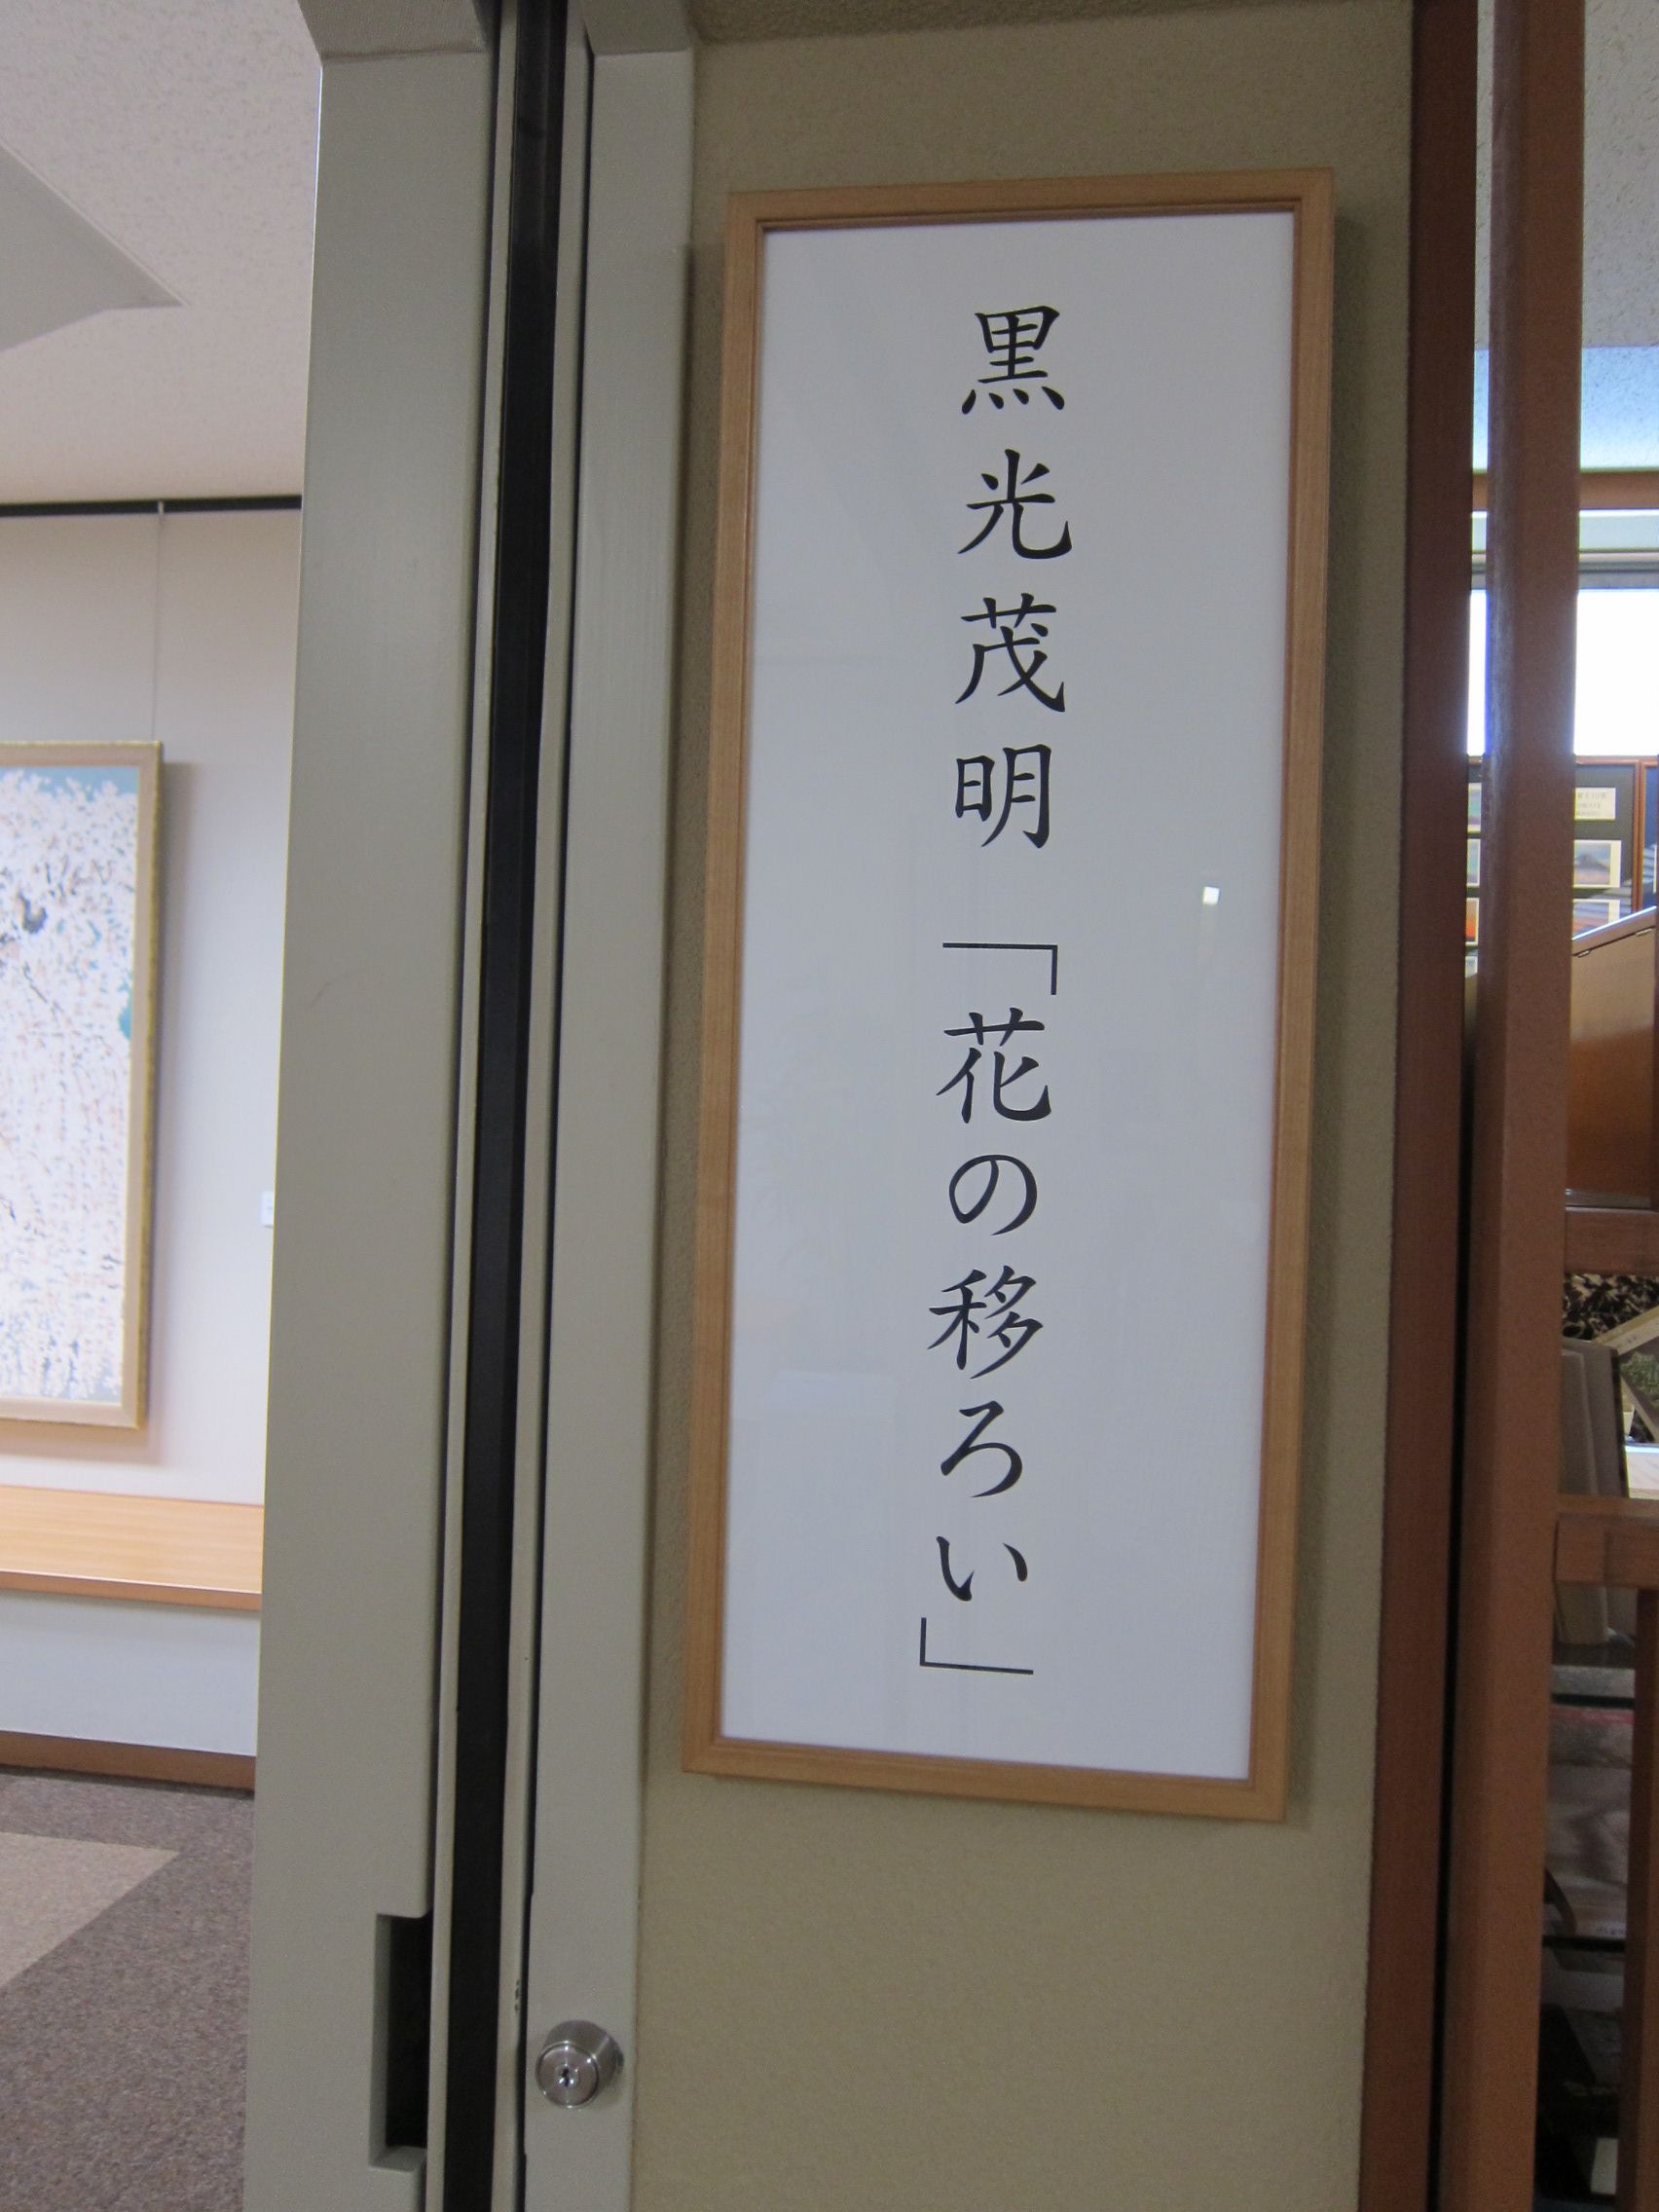 黒光茂明「花の移ろい」